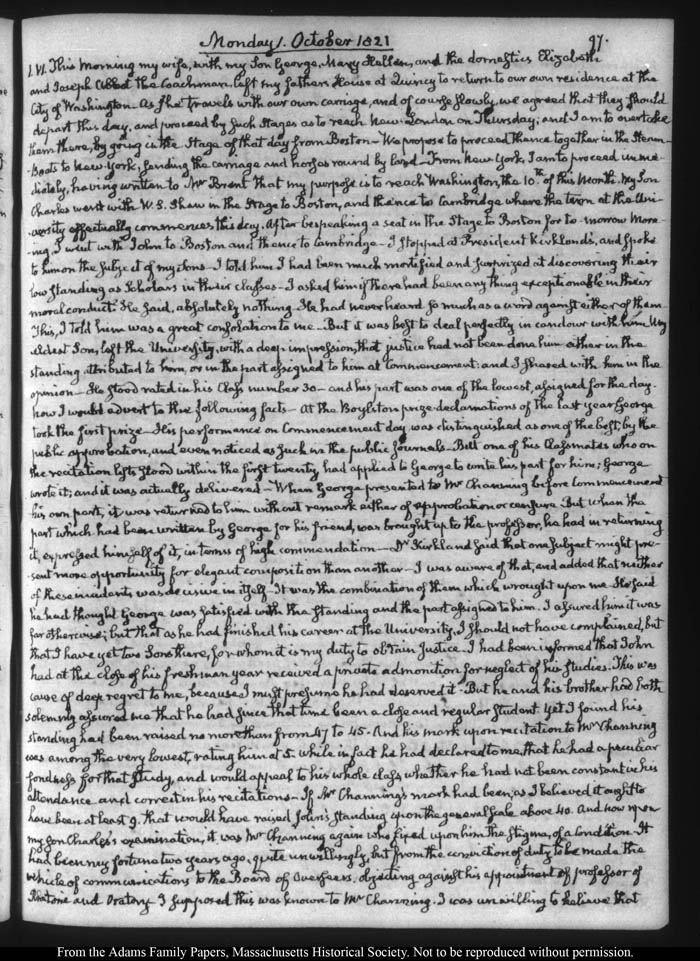 Monday 1. October 1821
97.
1. VI. This Morning my wife, with my Son George, Mary Hellen, and the domestics Elizabeth
and Joseph the Coachman left my father's House at Quincy to return to our own residence at the
City of Washington. As she travels with our own carriage, and of course slowly, we agreed that they should
depart this day, and proceed by such Stages as to reach New-London on Thursday; and I am to overtake
them there, by going in the Stage of that day from Boston— We propose to proceed thence together in the Steam-
-Boats to New-York, sending the carriage and horses round by land— From New York, I am to proceed imme-
diately, having written to Mr Brent that my purpose is to reach Washington, the 10th of this Month. My Son
Charles went with W. S. Shaw in the Stage to Boston, and thence to Cambridge where the term at the Uni-
versity effectually commences this day. After bespeaking a seat in the Stage to Boston for to-morrow Morn-
-ing, I went with John to Boston and thence to Cambridge— I stopped at President Kirkland's, and spoke
to him on the subject of my Sons— I told him I had been much mortified and surprized at discovering their
low standing as Scholars in their classes— I asked him if there had been any thing exceptionable in their
moral conduct. He said, absolutely nothing— He had never heard so much as a word against either of them
This, I told him was a great consolation to me— But it was best to deal perfectly in candour with him. My
eldest Son, left the University, with a deep impression, that justice had not been done him either in the
standing attributed to him, or in the part assigned to him at Commencement: and I shared with him in the
opinion— He stood rated in his Class number 30— and his part was one of the lowest, assigned for the day.
now I would advert to the following facts— At the Boylston prize declamations of the last year George
took the first prize— His performance on Commencement day was distinguished as one of the best, by the
public approbation, and even noticed as such in the public journals— But one of his Classmates who on
the recitation lists stood within the first twenty, had applied to George to write his part for him; George
wrote it; and it was actually delivered— When George presented to Mr Channing before commencement
his own part, it was returned to him without remark either of approbation or censure. But when the
part which had been written by George for his friend, was brought up to the professor, he had in returning
it, expressed himself of it, in terms of high commendation— Dr Kirkland said that one subject might pre-
sent more opportunity for elegant composition than another— I was aware of that, and added that neither
of these incidents was decisive in itself— It was the combination of them which wrought upon me. He said
he had thought George was satisfied with the standing and the part assigned to him. I assured him it was
far otherwise; but that as he had finished his career at the University, I should not have complained, but
that I have yet two Sons there, for whom it is my duty to obtain Justice. I had been informed that John
had at the close of his freshman year received a private admonition for neglect of his studies. This was
cause of deep regret to me, because I must presume he had deserved it. But he and his brother had both
solemnly assured me that he had since that time been a close and regular Student. Yet I found his
standing had been raised no more than from 47 to 45. And his mark upon recitation to Mr Channing
was among the very lowest, rating him at 5. while in fact he had declared to me, that he had a peculiar
fondness for that study, and would appeal to his whole class whether he had not been constant in his
attendance and correct in his recitations— If Mr Channing's mark had been, as I believed it ought to
have been at least 9. that would have raised John's standing upon the general scale above 40. And now upon
my Son Charles's examination, it was Mr Channing again who fixed upon him the stigma, of a Condition. It
had been my fortune two years ago, quite unwillingly, but from the conviction of duty to be made the
vehicle of communications to the Board of Overseers, objecting against his appointment of professor of
Rhetoric and Oratory. I supposed this was known to Mr Channing. I was unwilling to believe that
From the Adams Family Papers, Massachusetts Historical Society. Not to be reproduced without permission.